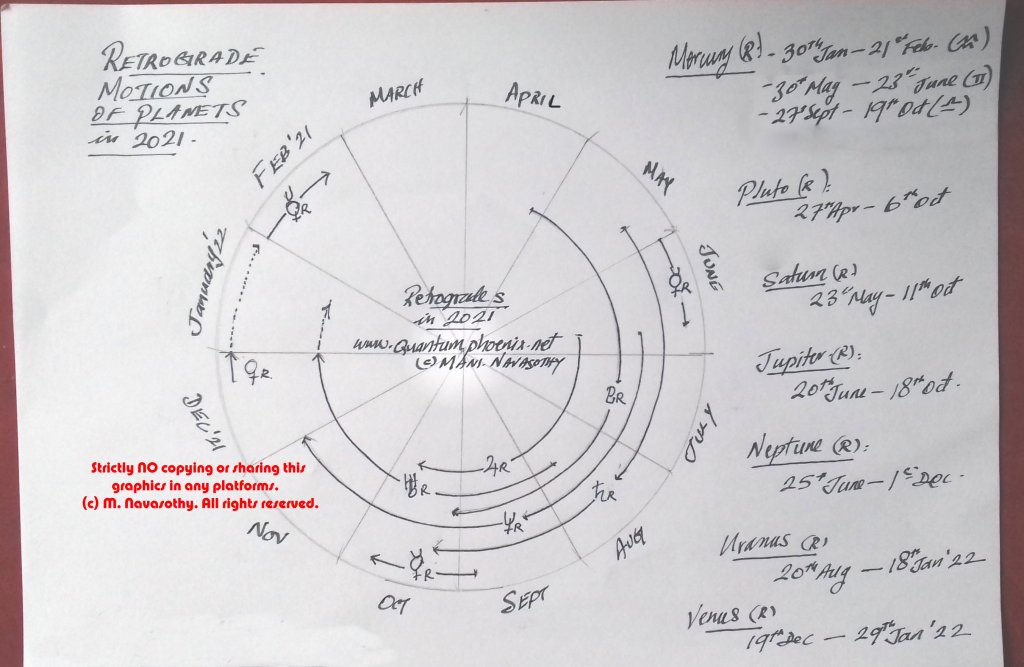 RETROGRADE
MOTIONS
OF PLANETS
in 2021.
MARCH
APRIL
MAY
JUNE
JULY
AUG
SEPT
OCT
NOV
DEC '21
January '22
FEB '21
Retrogrades
in 2021
www.Quantumphoenix.net
(c) MANI NAVASOTHY
☿R
☿R
BR
♃R
♄R
♅R
♆R
☿R
♀R
Strictly NO copying or sharing this
graphics in any platforms.
(c) M. Navasothy. All rights reserved.
Mercury (R) - 30th Jan - 21st Feb. (♒)
- 30th May - 23rd June (♊)
- 27th Sept - 19th Oct (♎)
Pluto (R):
27th Apr - 6th Oct
Saturn (R)
23rd May - 11th Oct
Jupiter (R):
20th June - 18th Oct.
Neptune (R):
25th June - 1st Dec.
Uranus (R)
20th Aug - 18th Jan '22
Venus (R)
19th Dec - 29th Jan '22